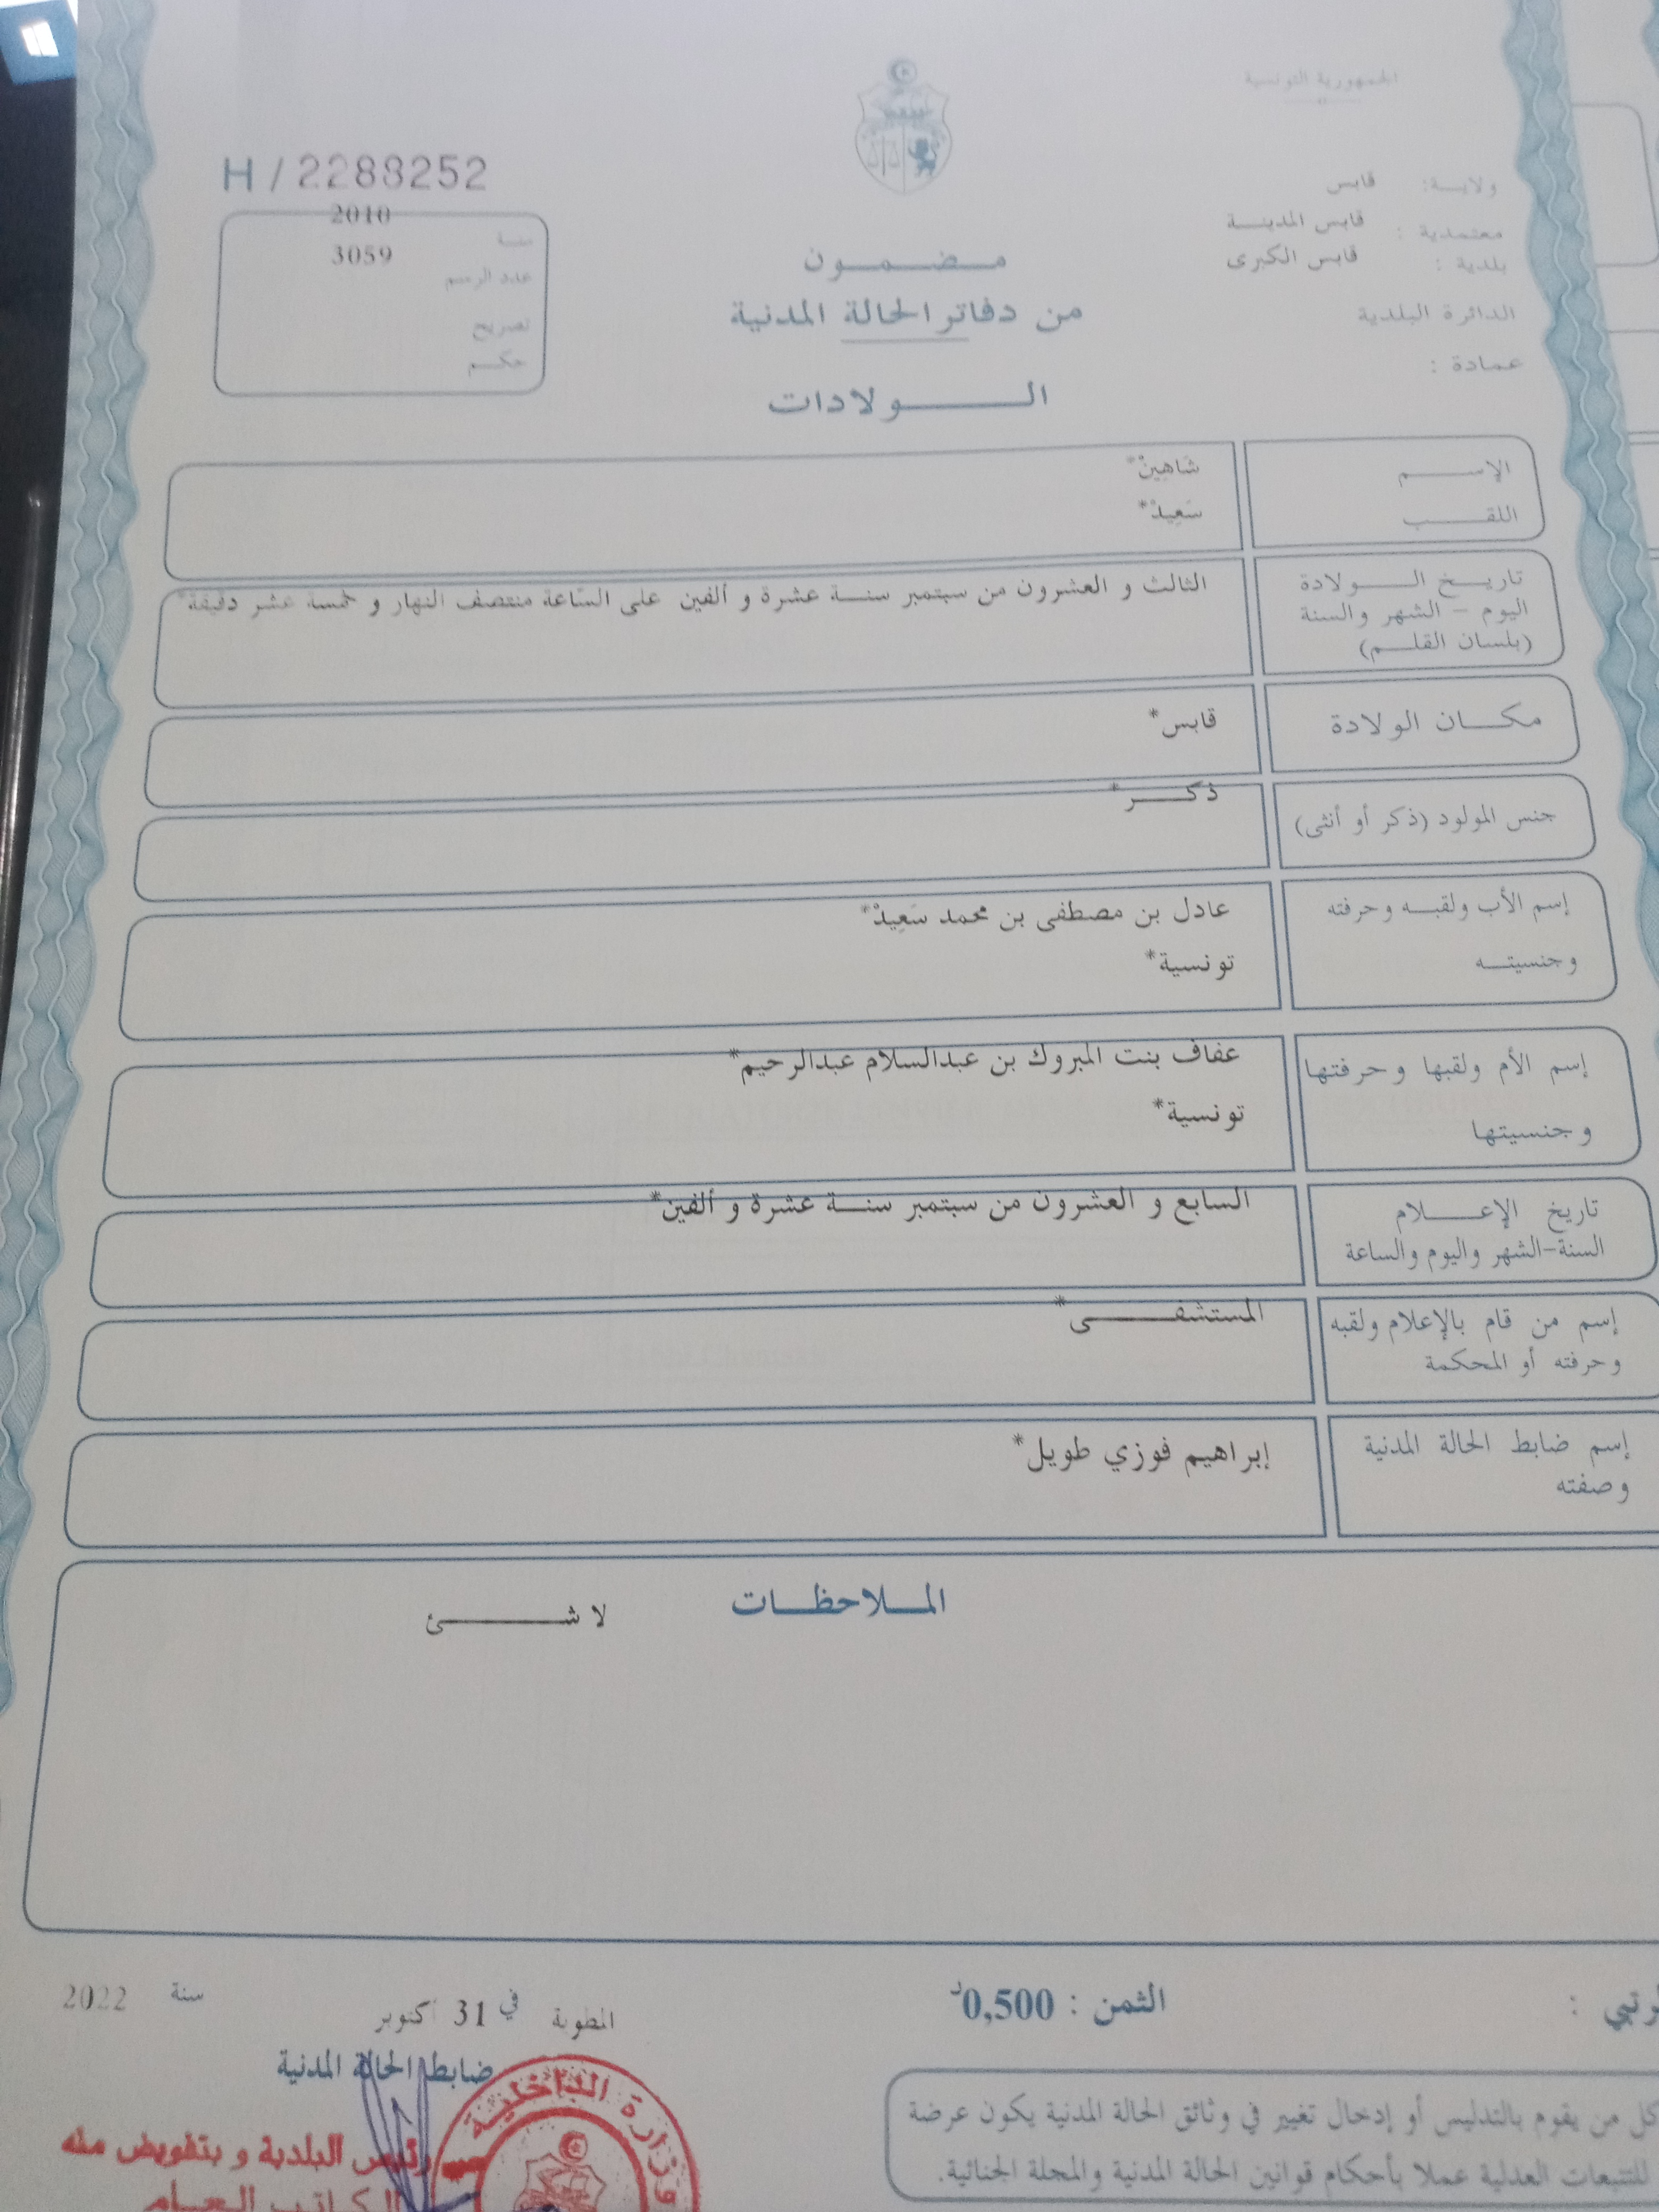 الجمهورية التونسية
ولاية: قابس
معتمدية : قابس المدينة
بلدية : قابس الكبرى
الدائرة البلدية
عمادة :
H / 2288252
سنة 2010
عدد الرسم 3059
تصريح
حكم
مضمون
من دفاتر الحالة المدنية
الولادات
الإسم شَاهِينْ*
اللقب سَعِيدْ*
تاريخ الولادة الثالث و العشرون من سبتمبر سنة عشرة و ألفين على السّاعة منتصف النهار و خمسة عشر دقيقة*
اليوم - الشهر والسنة
(بلسان القلم)
مكان الولادة قابس*
جنس المولود (ذكر أو أنثى) ذكر*
إسم الأب ولقبه وحرفته عادل بن مصطفى بن محمد سَعِيدْ*
وجنسيته تونسية*
إسم الأم ولقبها وحرفتها عفاف بنت المبروك بن عبدالسلام عبدالرحيم*
وجنسيتها تونسية*
تاريخ الإعلام السابع و العشرون من سبتمبر سنة عشرة و ألفين*
السنة-الشهر واليوم والساعة
إسم من قام بالإعلام ولقبه المستشفى*
وحرفته أو المحكمة
إسم ضابط الحالة المدنية إبراهيم فوزي طويل*
وصفته
الملاحظات
لا شئ
الثمن : 0,500د
المطوية في 31 أكتوبر سنة 2022
ضابط الحالة المدنية
وزارة الداخلية
رئيس البلدية و بتفويض منه
الكاتب العام
كل من يقوم بالتدليس أو إدخال تغيير في وثائق الحالة المدنية يكون عرضة
للتتبعات العدلية عملا بأحكام قوانين الحالة المدنية والمجلة الجنائية.